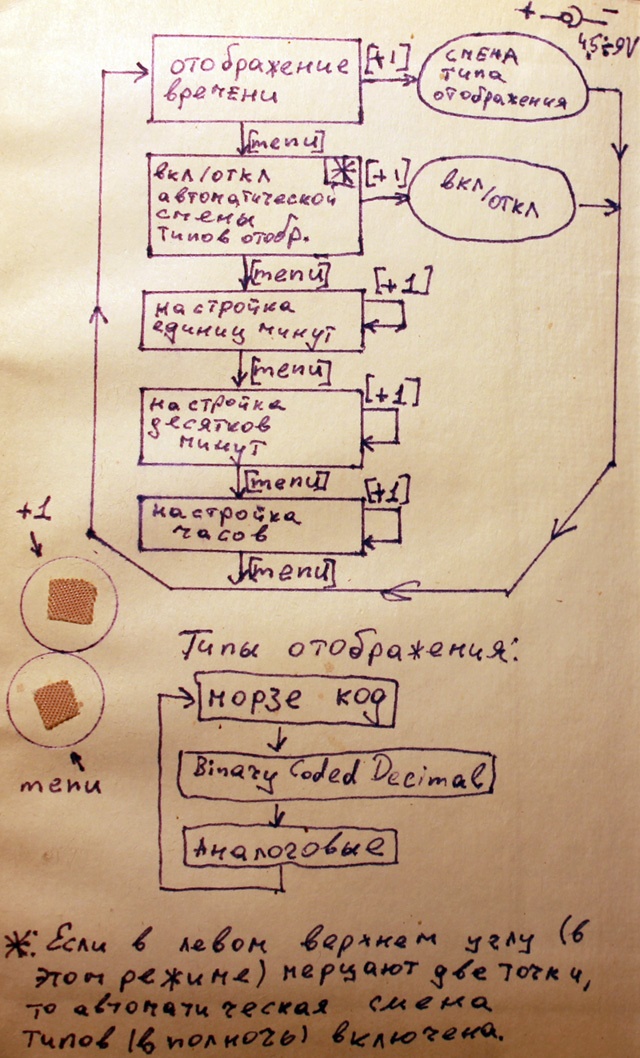 + −
4,5÷9V
отображение
времени
[+1]
смена
типа
отображения
[menu]
вкл/откл
автоматической
смены
типов отобр.
*
[+1]
вкл/откл
[menu]
настройка
единиц минут
[+1]
[menu]
настройка
десятков
минут
[+1]
[menu]
настройка
часов
[+1]
[menu]
+1
menu
Типы отображения:
морзе код
Binary Coded Decimal
Аналоговые
*: Если в левом верхнем углу (в
этом режиме) мерцают две точки,
то автоматическая смена
типов (в полночь) включена.